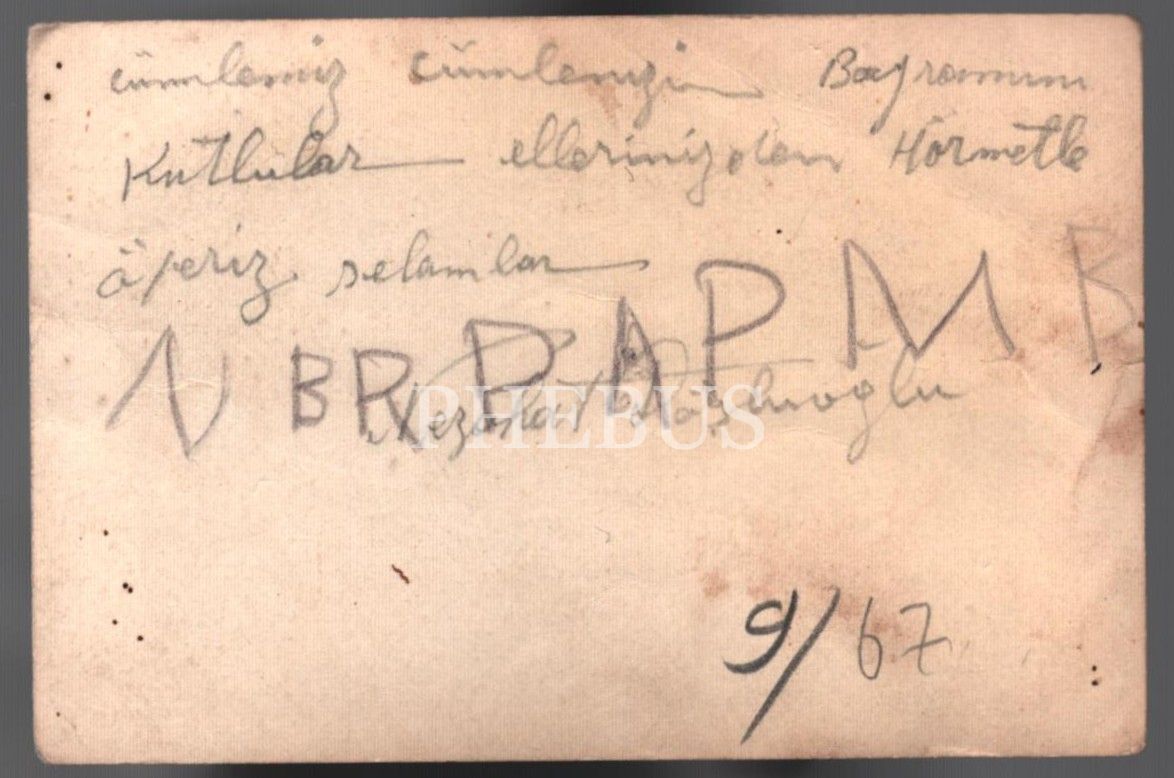 cümlemiz cümlenizin Bayramını
Kutlular ellerinizden Hörmetle
öperiz selamlar
N B R P A P M B
Nezahat
PHEBUS
9/67